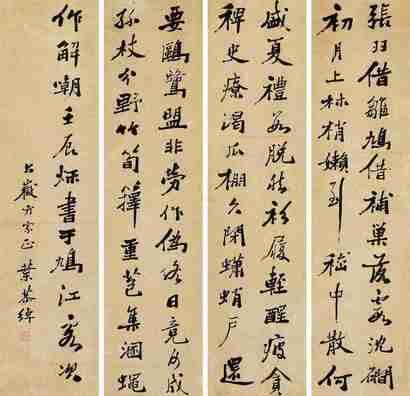 張羽借雛鳩借補巢落霞沈磵
初月上林梢嬾到嵇中散何
盛夏禮脫衫履輕醒疲貪
稗史療渴瓜棚久閉蠨蛸戶還
要鷗鷺盟非勞作偽日竟成
孫枝分野竹筍籜重苞集涸蠅
作解嘲壬辰秌書于鳩江客次
大巖方家正 葉恭綽